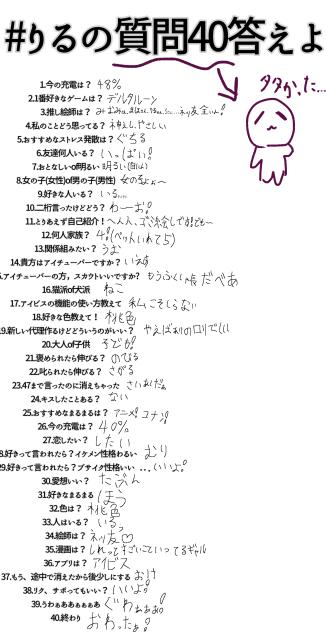 #りるの質問40答えよ
タヒかった...
1.今の充電は？ 48%
2.1番好きなゲームは？ デルタルーン
3.推し絵師は？
4.私のことどう思ってる？ 神えしやさしい
5.おすすめなストレス発散は？ ぐちる
6.友達何人いる？ いっぱい!
7.おとなしいof明るい 明るい
8.女の子(女性)of男の子(男性) 女の子よぉ〜
9.好きな人いる？ いる...
10.二桁言ったけどどう？ わーお!
11.とりあえず自己紹介！
12.何人家族？ 4!(ペットいれて5)
13.関係組みたい？ うむ
14.貴方はアイチューバーですか？ いえす
15.アイチューバーの方，スカウトいいですか？
16.猫派of犬派 ねこ
17.アイビスの機能の使い方教えて 私こそしらない
18.好きな色教えて！ 桃色
19.新しい代理作るけどどういうのがいい？ やぱばりのロリでしし
20.大人of子供 そどが!
21.褒められたら伸びる？ のびる
22.叱られたら伸びる？ さがる
23.47まで言ったのに消えちゃった さいあくだぁ
24.キスしたことある？ ない
25.おすすめなまるまるは？ アニメ! コナン!
26.今の充電は？ 40%
27.恋したい？ したい
28.好きって言われたら？イケメン性格わるい むり
29.好きって言われたら？ブサイク性格いい ...いいよ!
30.愛想いい？ たぶん
31.好きなまるまる
32.色は？ 桃色
33.人はいる？ いるっ
34.絵師は？ ネッ友♡
35.漫画は？
36.アプリは？ アイビス
37.もう、途中で消えたから後少しにする おけ
38.リク、サポってもいい？ いいよ!
39.うわぁああぁぁぁあ ぐわぁぁぁぉ!
40.終わり おわったぁ!